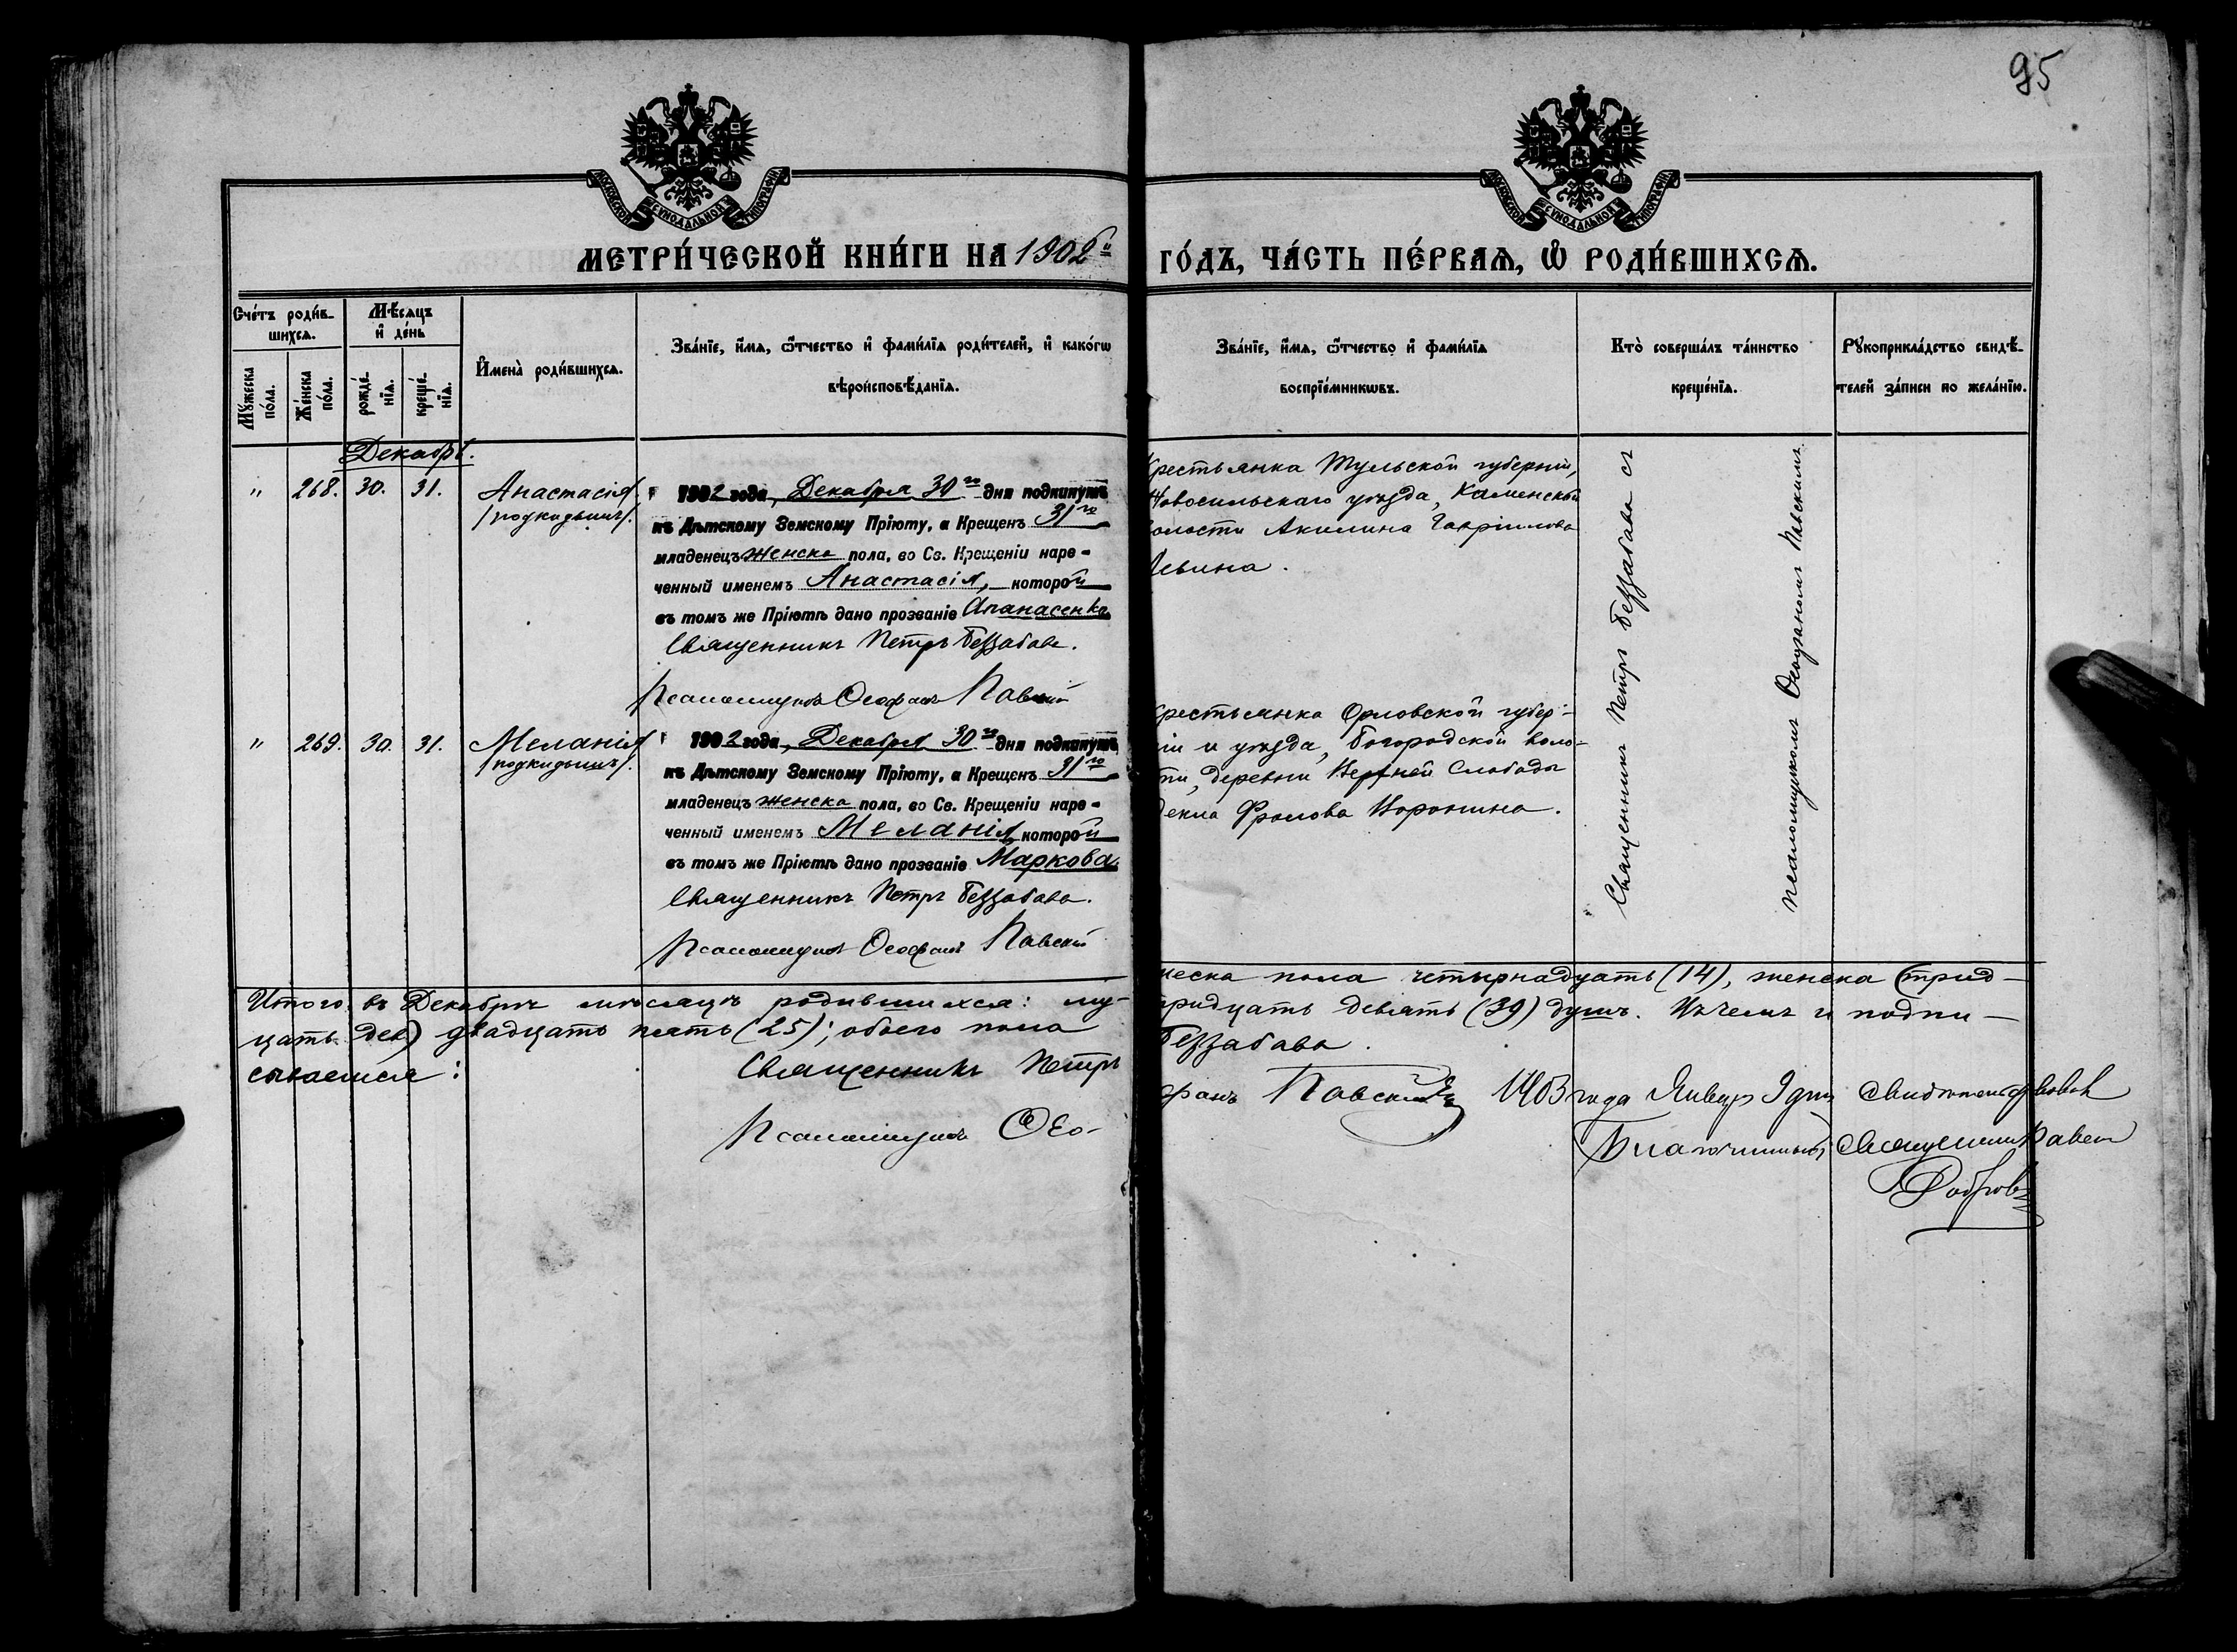 95
МОСКОВСКОЙ СѴНОДАЛЬНОЙ ТИПОГРАФІИ
МОСКОВСКОЙ СѴНОДАЛЬНОЙ ТИПОГРАФІИ
МЕТРИ́ЧЕСКОЙ КНИ́ГИ НА 1902й
ГО́ДЪ, ЧА́СТЬ ПЕ́РВАЯ, Ѡ РОДИ́ВШИХСЯ.
Сче́тъ роди́в-
шихся.
Мѣ́сяцъ
и де́нь
Му́жеска по́ла.
Же́нска по́ла.
рожде́-нїя.
креще́-нїя.
Имена̀ роди́вшихся.
Зва́нїе, и́мя, ѻ́тчество и фами́лїя роди́телей, и како́гѡ
вѣроисповѣ́данїя.
Зва́нїе, и́мя, ѻ́тчество и фами́лїя
воспрїе́мникѡвъ.
Кто̀ соверша́лъ та́инство
креще́нїя.
Рꙋкоприкла́дство свидѣ́-
телей за́писи по жела́нїю.
Декабрь.
" 268. 30. 31. Анастасія
/подкидышъ/.
1902 года, Декабря 30го дня подкинутъ
къ Дѣтскому Земскому Пріюту, а Крещенъ 31го
младенецъ женска пола, во Св. Крещеніи наре-
ченный именемъ Анастасія, которой
въ томъ же Пріютѣ дано прозваніе Апанасенко
Священникъ Петръ Беззабава.
Псаломщикъ Ѳеофанъ Павскій
Крестьянка Тульской губерніи,
Новосильскаго уѣзда, Каменской
волости Акилина Гавріилова
Левина.
" 269. 30. 31. Меланія
/подкидышъ/.
1902 года, Декабря 30го дня подкинутъ
къ Дѣтскому Земскому Пріюту, а Крещенъ 31го
младенецъ женска пола, во Св. Крещеніи наре-
ченный именемъ Меланія, которой
въ томъ же Пріютѣ дано прозваніе Маркова
Священникъ Петръ Беззабава.
Псаломщикъ Ѳеофанъ Павскій
крестьянка Орловской губер-
ніи и уѣзда, Богородской воло-
сти, деревни Верхней Слободы
Ѳекла Фролова Воронина.
Священникъ Петръ Беззабава съ
псаломщикомъ Ѳеофаномъ Павскимъ
Итого въ Декабрѣ мѣсяцѣ родившихся: му-
жеска пола четырнадцать (14), женска (трид-
цать дев) двадцать пять (25); обоего пола
тридцать девять (39) душъ. Въ чемъ и подпи-
сываемся:
Священникъ Петръ
Беззабава.
Псаломщикъ Ѳео-
фанъ Павскій
1903 года Январ 9 дня Свидѣтельствовалъ
Благочинный Священникъ Павелъ